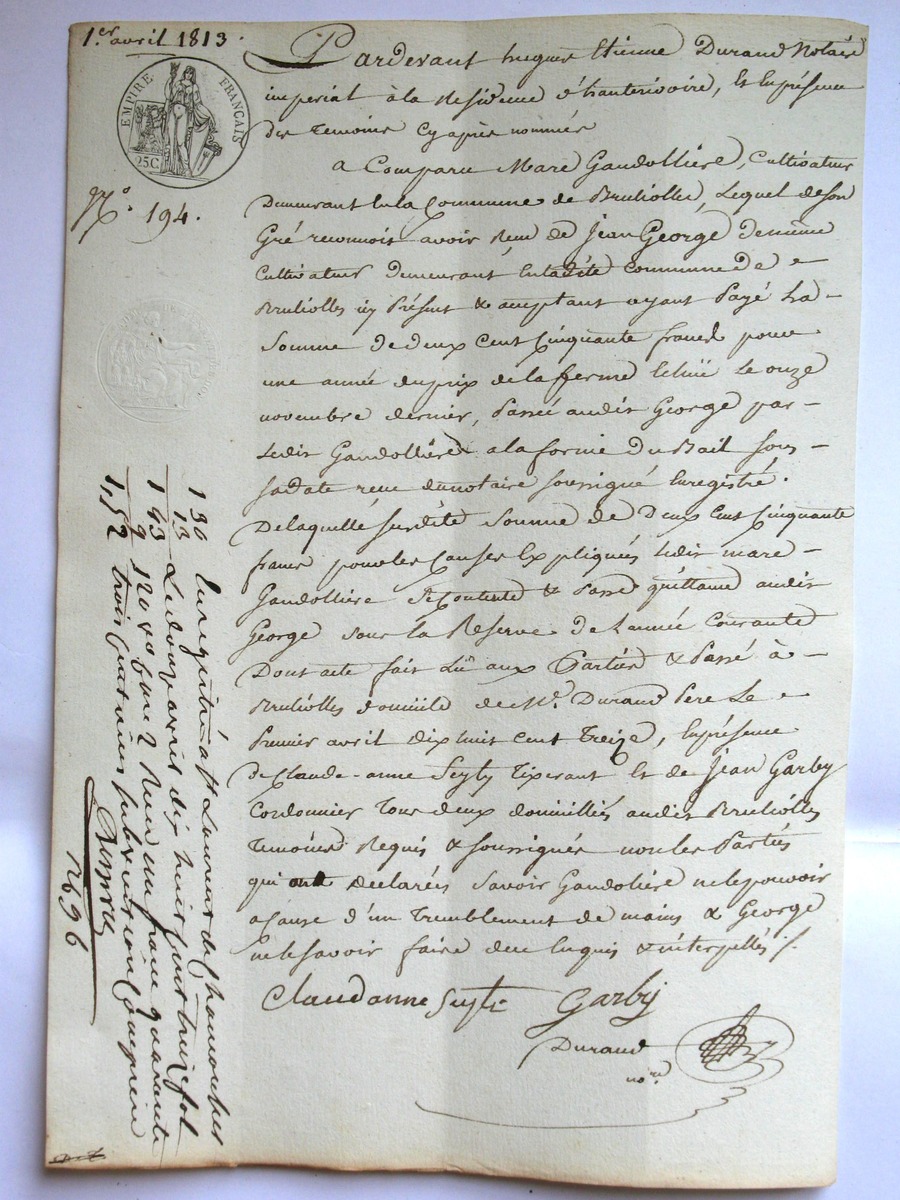 1.er avril 1813.
EMPIRE FRANÇAIS
25C
N.o 194.
Pardevant hugues Etienne Durand Notaire
imperial à la Residence d'hauterivoire, Et En présence
des temoins Cy après nommés
a Comparu Marc Gaudollière, Cultivateur
Demeurant En la Commune de Brulliolles, Lequel de Son
Gré reconnois avoir Reçu de Jean George Demême
Cultivateur demeurant En ladite Commune de
Brulliolles icy Présent & acceptant ayant Payé La
Somme de deux Cent Cinquante francs pour
une année du prix de la ferme Echüe Le onze
novembre dernier, Passée audit George par
Ledit Gaudollière a la forme du Bail Sous
Sa date reçu du notaire Soussigné Enregistré.
De laquelle Susdite Somme de Deux Cent Cinquante
francs pour les Causes Expliquées Ledit marc
Gaudollière Se Contente & Passe quittance audit
George Sous la Reserve de L'année Courante
Dont acte fait Lü aux Parties & Passé à
Brulliolles domicile de Mr. Durand Pere Le
Premier avril dix huit Cent Treize, En présence
de Claude-anne Seyty Tixerant Et de Jean Garby
Cordonnier Tous deux domicilliés audit Brulliolles
Temoins Requis & Soussignés non les Parties
qui ont declarées Savoir Gaudolière ne le pouvoir
a Cause d'un Tremblement de mains & George
ne le Savoir faire de ce Enquis & interpellés ./.
Claudanne Seyte Garby
Durand
nore
130 Enregistré a St Laurent de Chamousset
13 Le douze avril dix huit cent treize fol
143 9 120 v° Case 2 Reçu un franc quarante
1,52 trois Centimes Subvention Comprise
1696